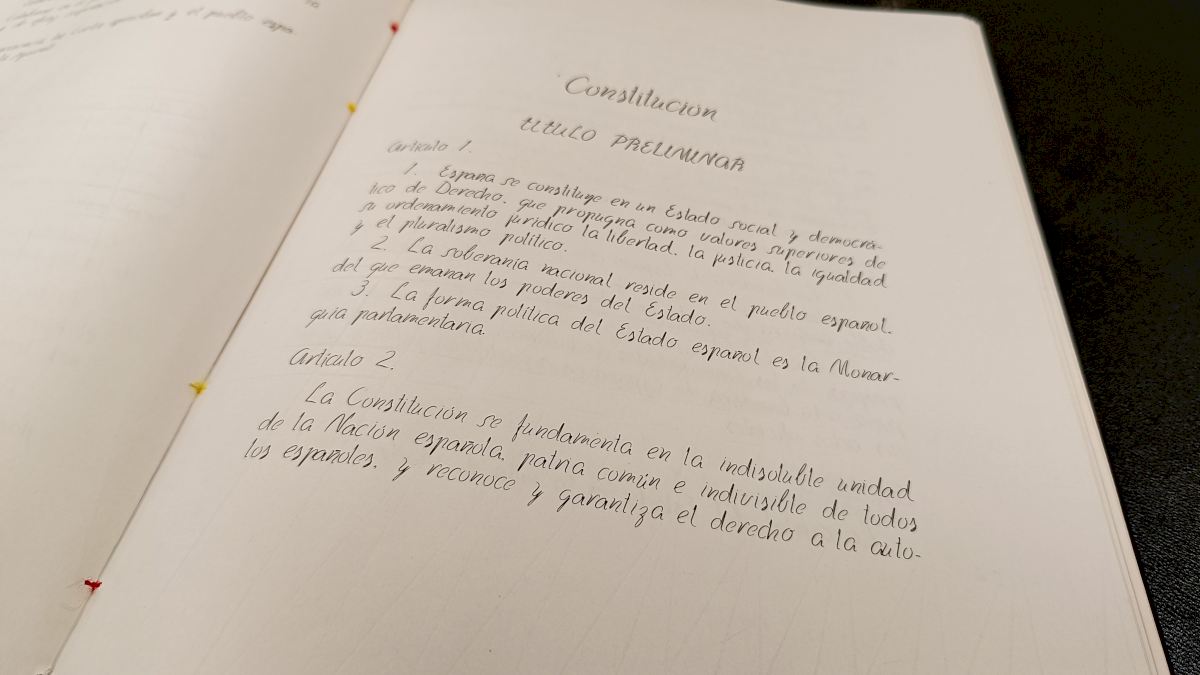 y el pueblo espa-
Constitución
TITULO PRELIMINAR
Artículo 1.
1. España se constituye en un Estado social y democrá-
tico de Derecho, que propugna como valores superiores de
su ordenamiento jurídico la libertad, la justicia, la igualdad
y el pluralismo político.
2. La soberanía nacional reside en el pueblo español,
del que emanan los poderes del Estado.
3. La forma política del Estado español es la Monar-
quía parlamentaria.
Artículo 2.
La Constitución se fundamenta en la indisoluble unidad
de la Nación española, patria común e indivisible de todos
los españoles, y reconoce y garantiza el derecho a la auto-